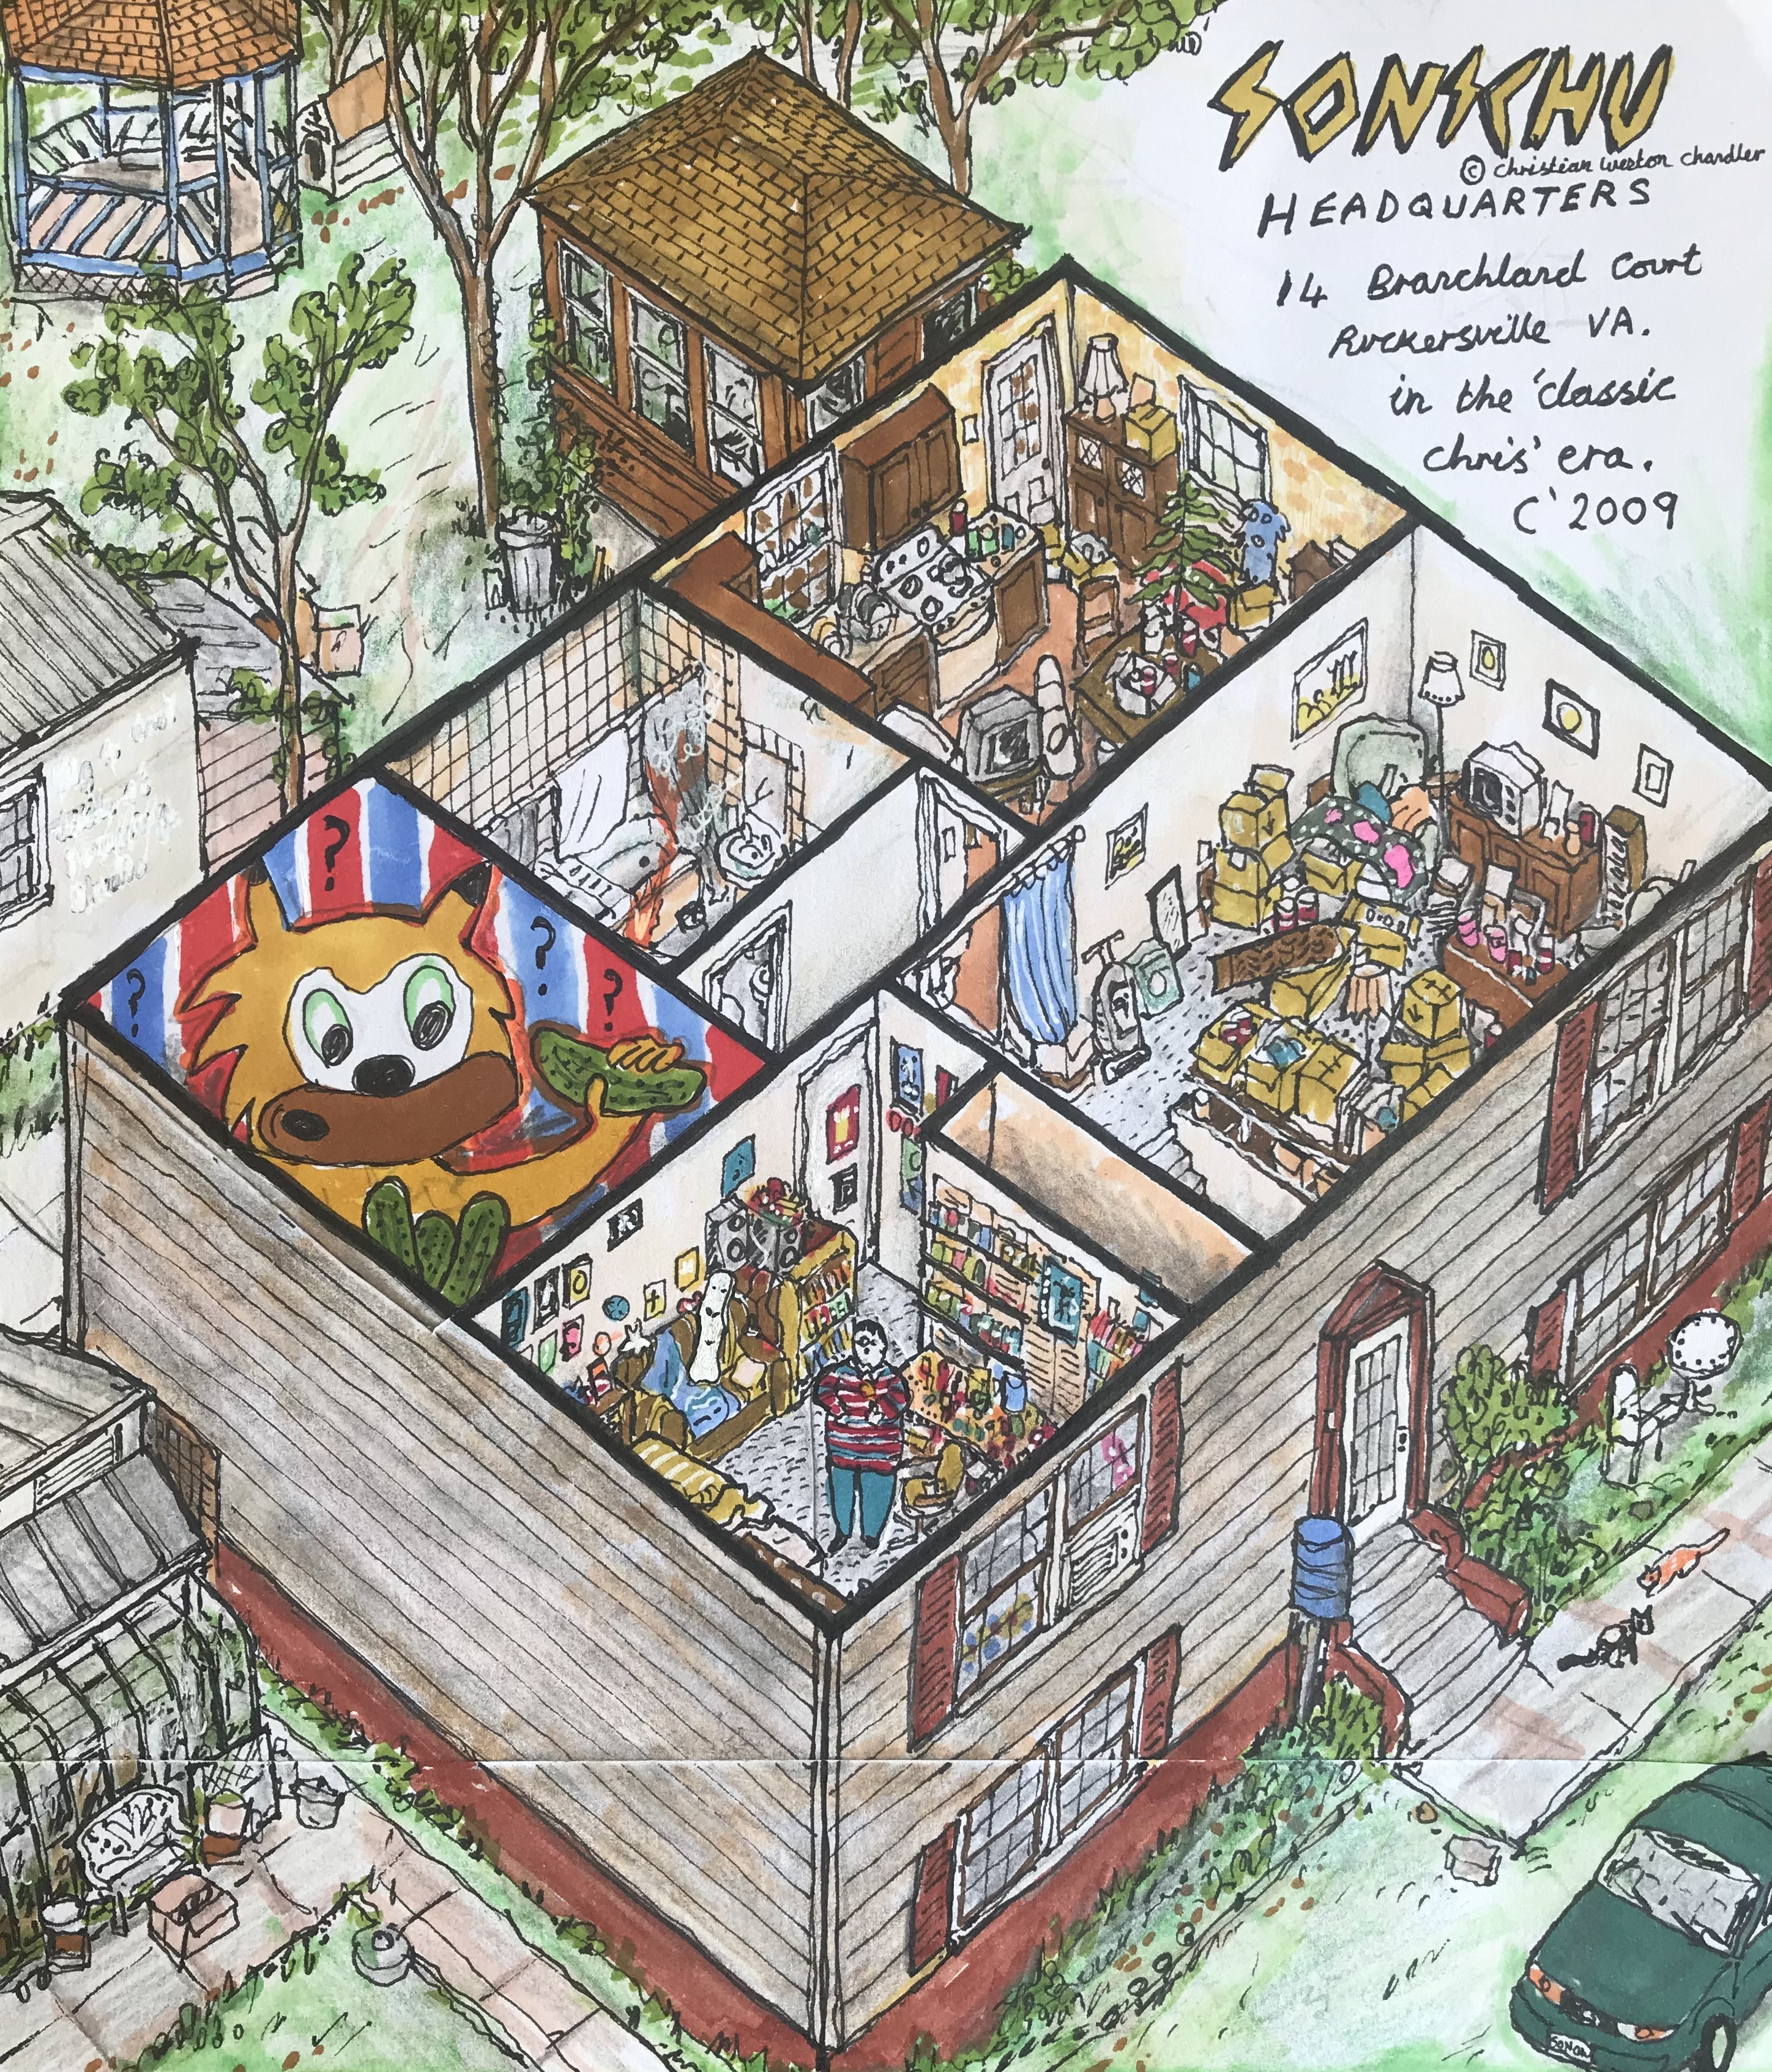 SONSCHU
© Christian Weston Chandler
HEADQUARTERS
14 Branchland Court
Ruckersville VA.
in the 'classic
chris' era.
C'2009
?
?
?
?
SONCHU